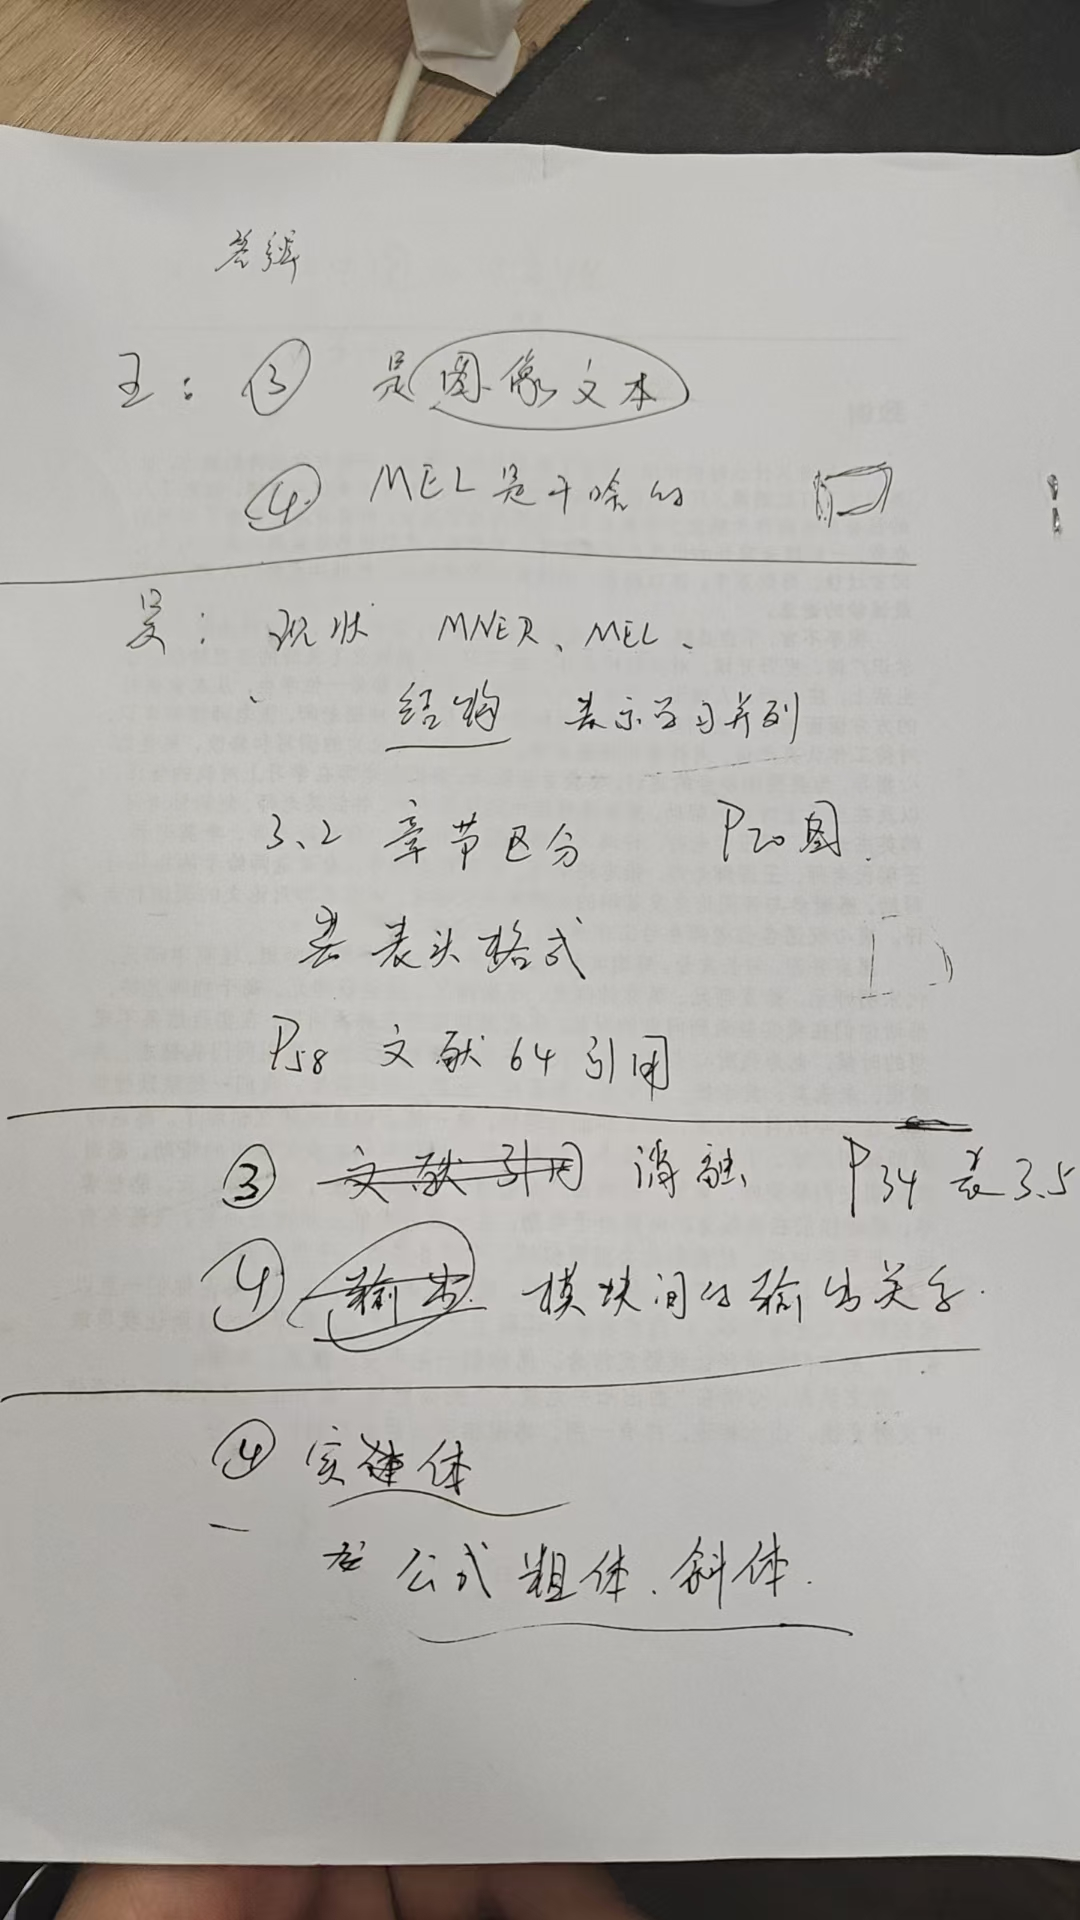 答辩
王：③ 是图像文本
④ MEL是干啥的
吴：现状 MNER、MEL、
结构 表示学习并列
3.2 章节区分 P20图.
表头格式
P58 文献64引用
③ 文献引用 消融 P34 表3.5
④ 输出 模块间的输出关系.
④ 实体
公式粗体、斜体.